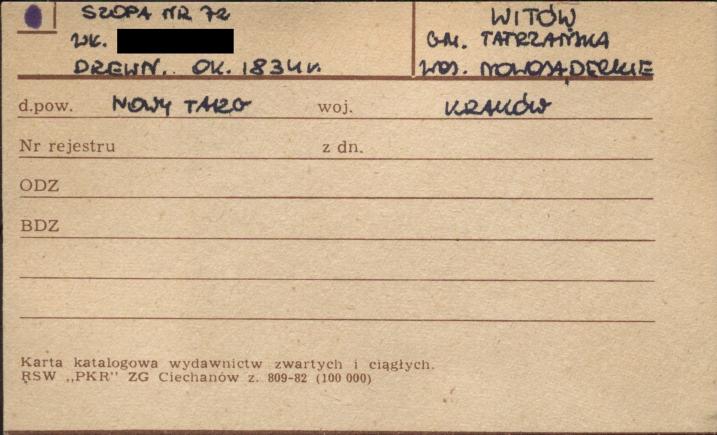 SZOPA NR 72
WŁ.
DREWN. OK. 1834 r.
WITÓW
GM. TATRZAŃSKA
WOJ. NOWOSĄDECKIE
d.pow. NOWY TARG woj. KRAKÓW
Nr rejestru z dn.
ODZ
BDZ
Karta katalogowa wydawnictw zwartych i ciągłych.
RSW „PKR" ZG Ciechanów z. 809-82 (100 000)